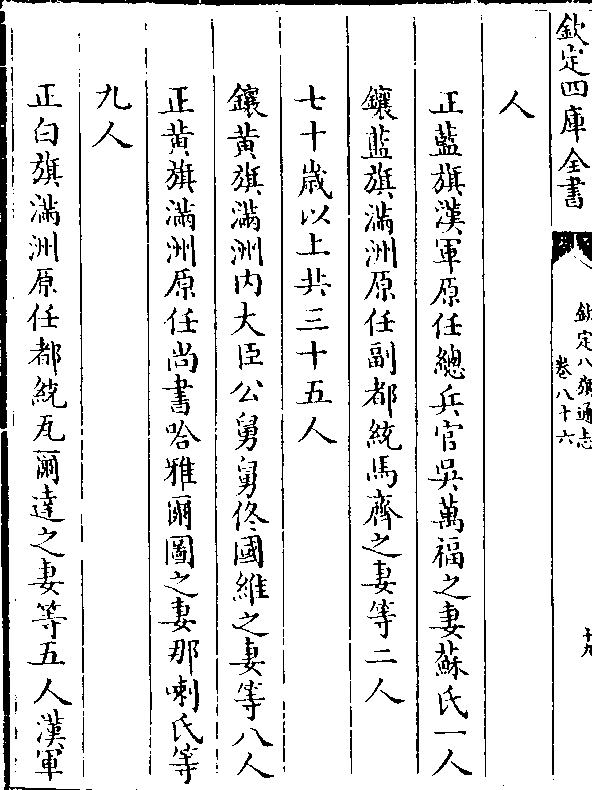 欽定四庫全書
欽定八旗通志
卷八十六
十九
人
正藍旗漢軍原任總兵官吳萬福之妻蘇氏一人
鑲藍旗滿洲原任副都統馬齊之妻等二人
七十歲以上共三十五人
鑲黃旗滿洲內大臣公舅舅佟國維之妻等八人
正黃旗滿洲原任尚書哈雅爾圖之妻那喇氏等
九人
正白旗滿洲原任都統瓦爾達之妻等五人漢軍